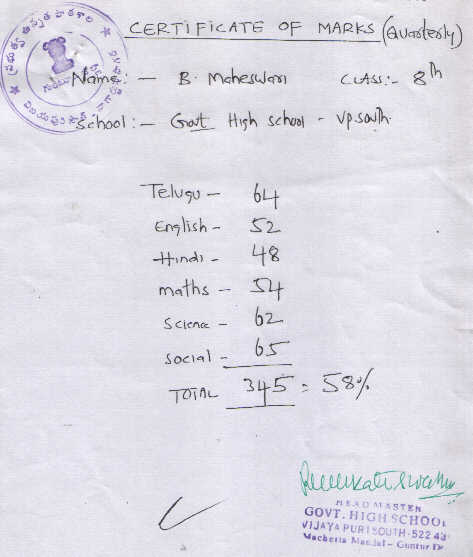 CERTIFICATE OF MARKS (Quarterly)
Name:- B. Maheswari CLASS:- 8th
School:- Govt High school - VP.South.
Telugu - 64
English - 52
Hindi - 48
maths - 54
Science - 62
Social - 65
TOTAL 345 = 58%
HEAD MASTER
GOVT. HIGH SCHOOL
VIJAYA PURI SOUTH-522 43
Macherla Mandal - Guntur Dt